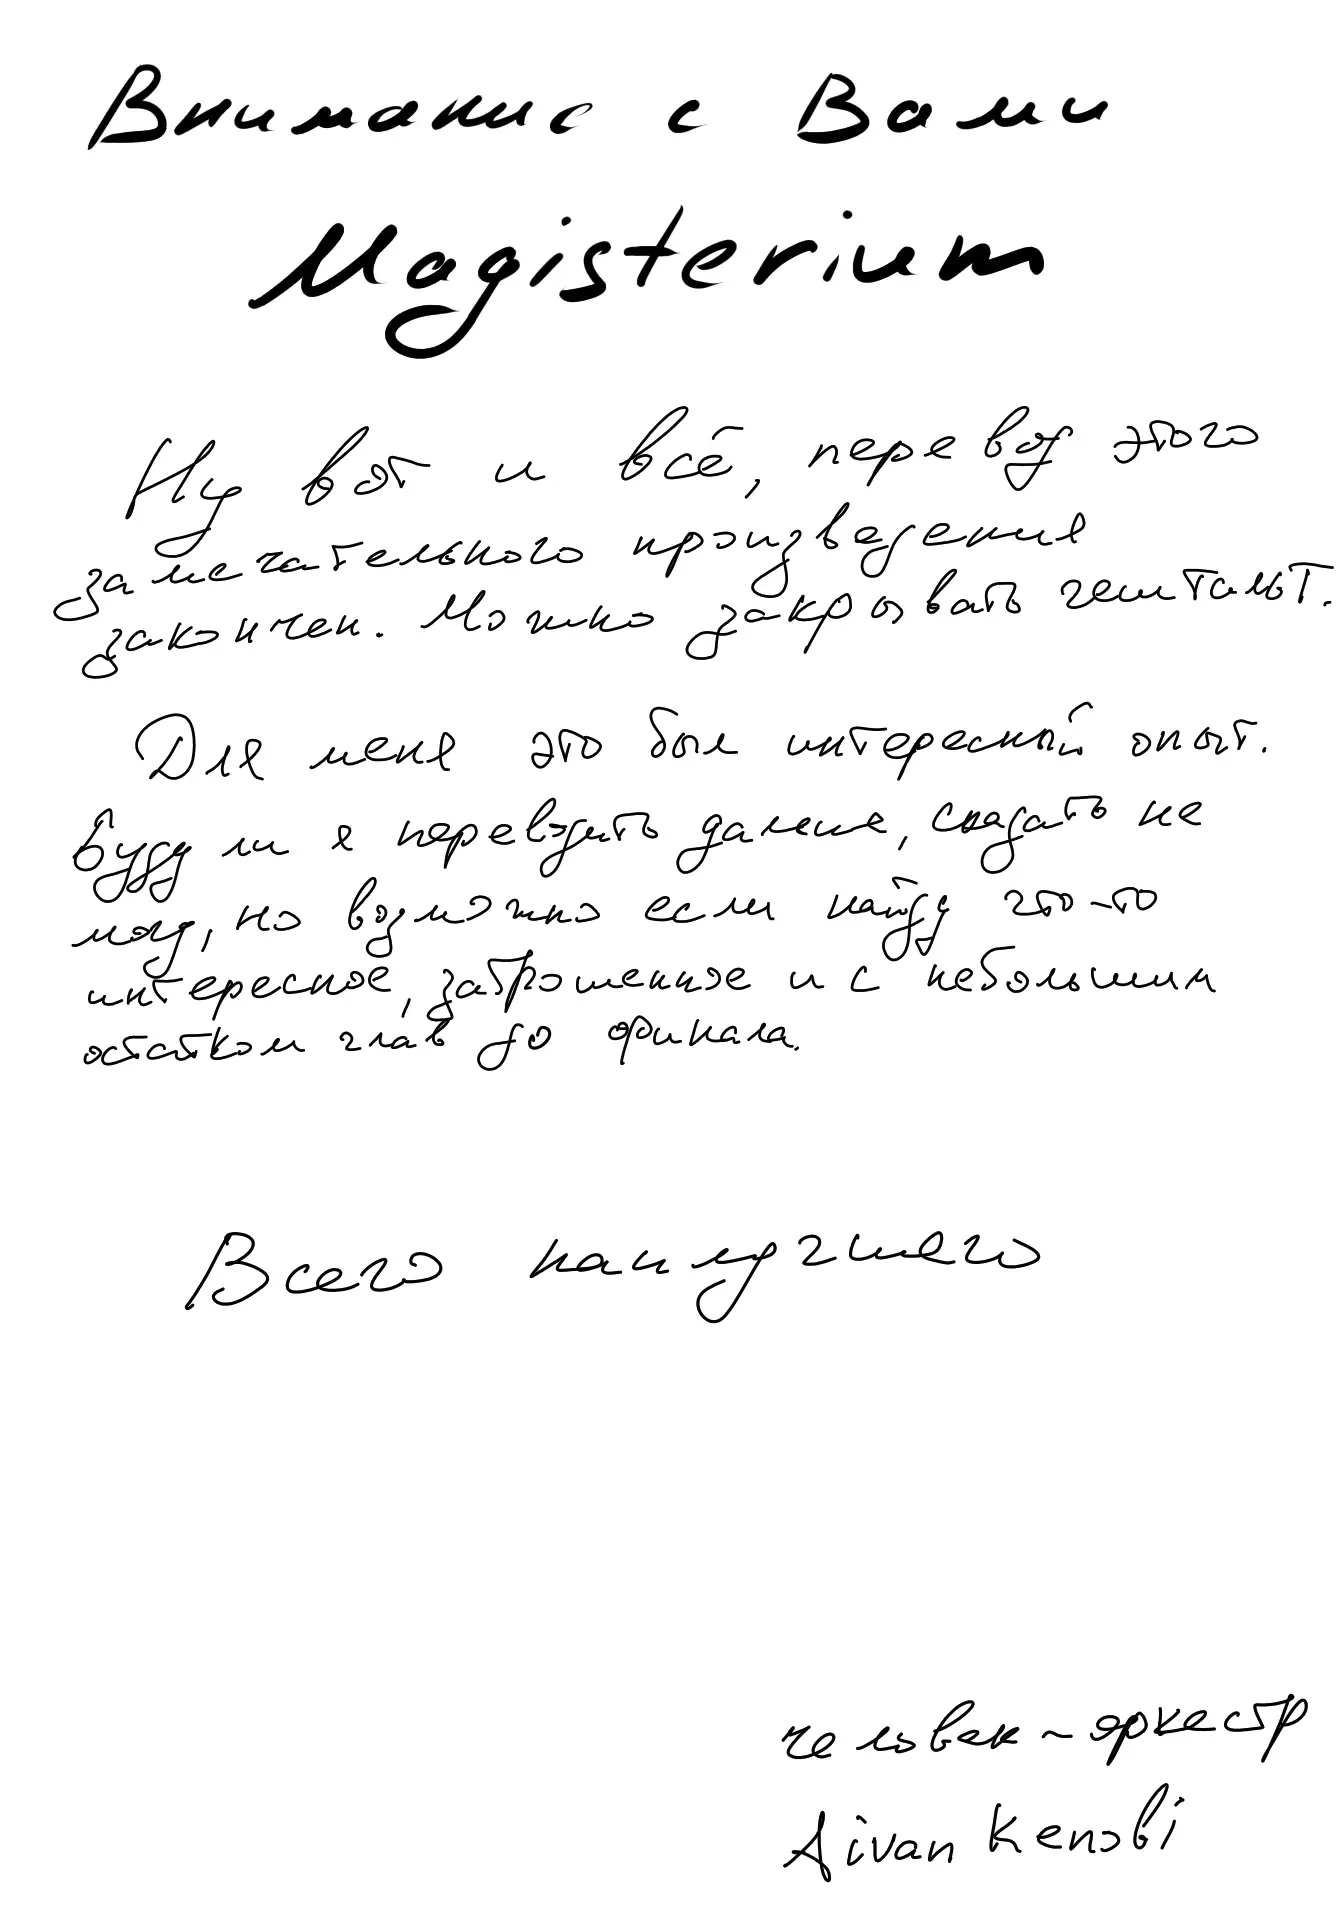 Внимание с Вами
Magisterium
Ну вот и всё, перевод этого
замечательного произведения
закончен. Можно закрывать гештальт.
Для меня это был интересный опыт.
Буду ли я переводить дальше, сказать не
могу, но возможно если найду что-то
интересное, заброшенное и с небольшим
остатком глав до финала.
Всего наилучшего
человек-оркестр
Aivan Kenobi